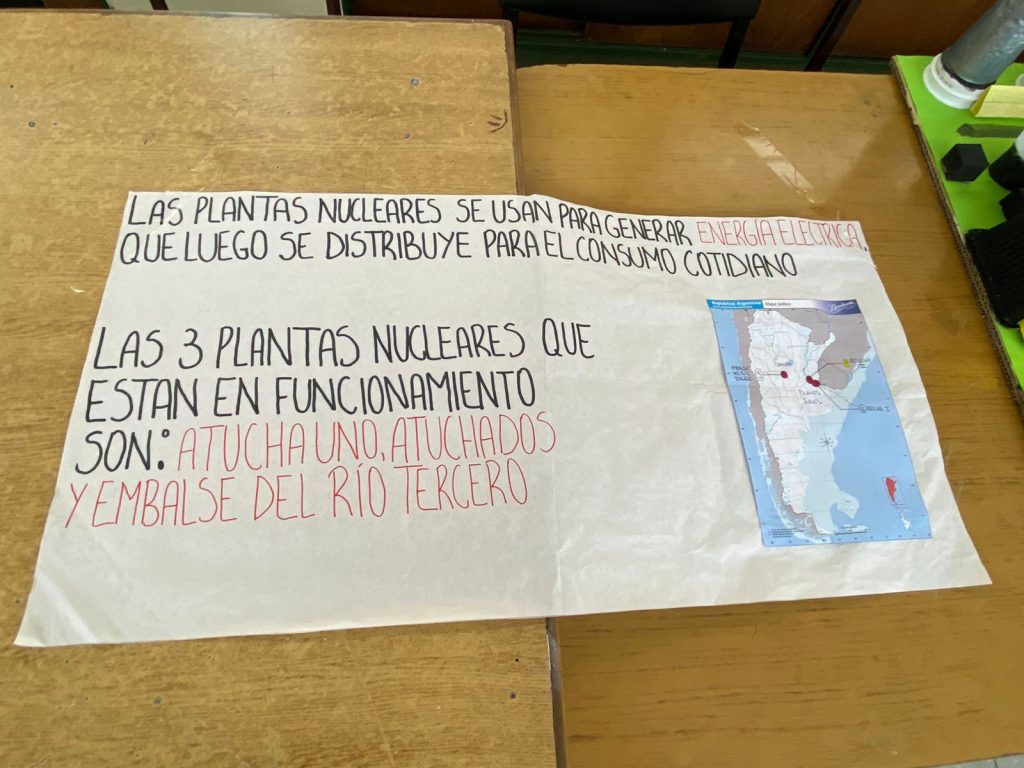 LAS PLANTAS NUCLEARES SE USAN PARA GENERAR ENERGÍA ELECTRICA,
QUE LUEGO SE DISTRIBUYE PARA EL CONSUMO COTIDIANO
LAS 3 PLANTAS NUCLEARES QUE
ESTAN EN FUNCIONAMIENTO
SON: ATUCHA UNO, ATUCHA DOS
Y EMBALSE DEL RÍO TERCERO
República Argentina Mapa político
BUENOS